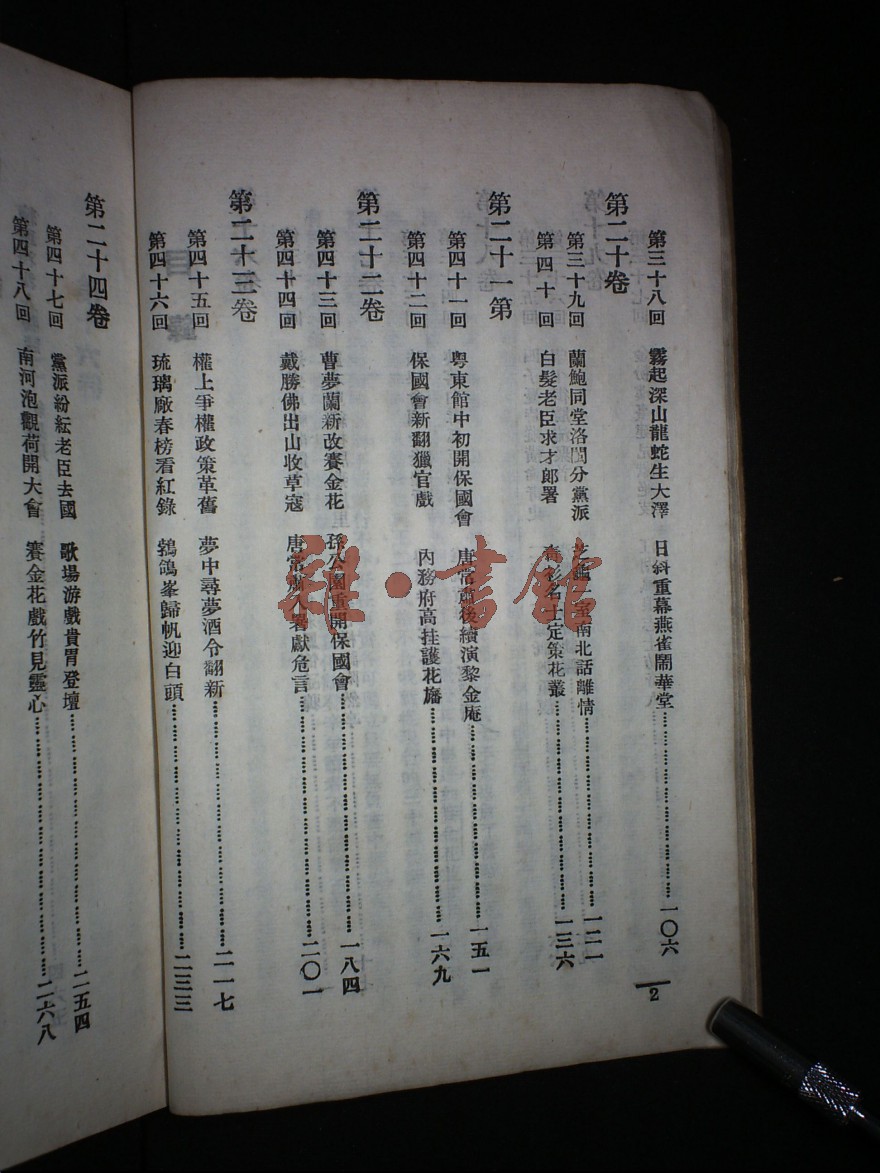 第三十八回 霧起深山龍蛇生大澤 日斜重幕燕雀鬧華堂 一〇六
第二十卷
第三十九回 蘭鮑同堂洛閩分黨派 芝龕一室南北話離情 一二一
第四十回 白髮老臣求才郎署 青衫名士定策花叢 一三六
第二十一第
第四十一回 粵東館中初開保國會 唐常肅後續演黎金庵 一五一
第四十二回 保國會新翻獵官戲 內務府高挂護花旛 一六九
第二十二卷
第四十三回 曹夢蘭新改賽金花 孫公園重開保國會 一八四
第四十四回 戴勝佛出山收草寇 唐常肅入署獻危言 二〇一
第二十三卷
第四十五回 權上爭權政策革舊 夢中尋夢酒令翻新 二一七
第四十六回 琉璃廠春榜看紅錄 鵓鴿峯歸帆迎白頭 二三三
2
第二十四卷
第四十七回 黨派紛紜老臣去國 歌場游戲貴胄登壇 二五四
第四十八回 南河泡觀荷開大會 賽金花戲竹見靈心 二六八
雅·書館